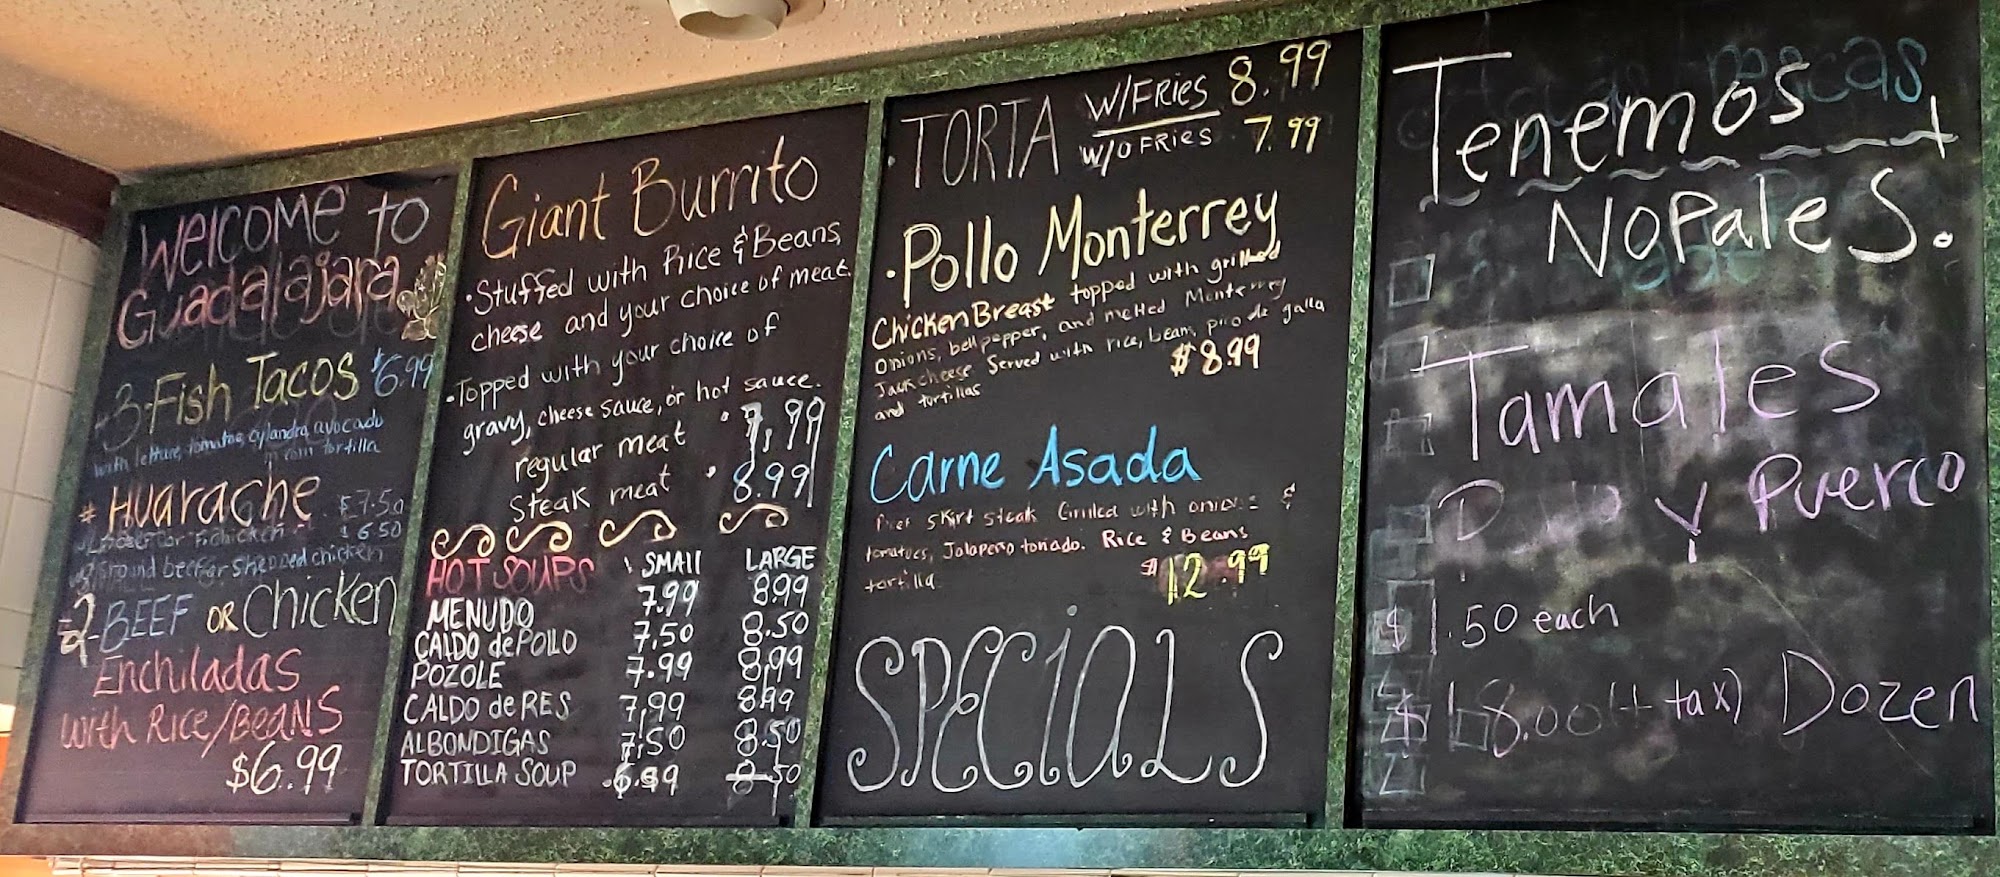 Welcome to
Guadalajara
3-Fish Tacos $6.99
with lettuce, tomatoe, cylandro, avocado
corn tortilla
* HUARACHE $7.50
$6.50
ground beef or shredded chicken
2-BEEF OR Chicken
Enchiladas
with Rice/BeANS
$6.99
Giant Burrito
• Stuffed with Rice & Beans,
cheese and your choice of meat.
• Topped with your choice of
gravy, cheese sauce, or hot sauce.
regular meat • 7.99
Steak meat • 8.99
HOT SOUPS SMALL LARGE
MENUDO 7.99 8.99
CALDO de POLLO 7.50 8.50
POZOLE 7.99 8.99
CALDO de RES 7.99 8.99
ALBONDIGAS 7.50 8.50
TORTILLA SOUP 6.99 8.50
• TORTA W/FRies 8.99
W/O FRIES 7.99
• Pollo Monterrey
Chicken Breast topped with grilled
onions, bell pepper, and melted Monterrey
Jack cheese Served with rice, beans, pico de galla
and tortillas $8.99
Carne Asada
skirt steak Grilled with onions &
tomatoes, Jalapeno toriado. Rice & Beans
tortilla. $12.99
SPECiALS
Tenemos
NOPaleS.
Tamales
y Puerco
$1.50 each
$18.00 (+ tax) Dozen